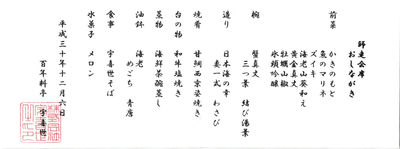 師走会席
おしながき
前菜
かきのもと
菜のマリネ
ズイキ
海老山葵和え
黄金真丈
牡蠣山椒
氷頭吟醸
椀
蟹真丈
三つ葉 結び湯葉
造り
日本海の幸
妻一式 わさび
焼肴
甘鯛西京姿焼き
台の物
和牛塩焼き
蒸物
海鮮茶碗蒸し
油鉢
海老
めごち 青唐
食事
宇喜世そば
水菓子
メロン
平成三十年十二月六日
百年料亭 宇喜世